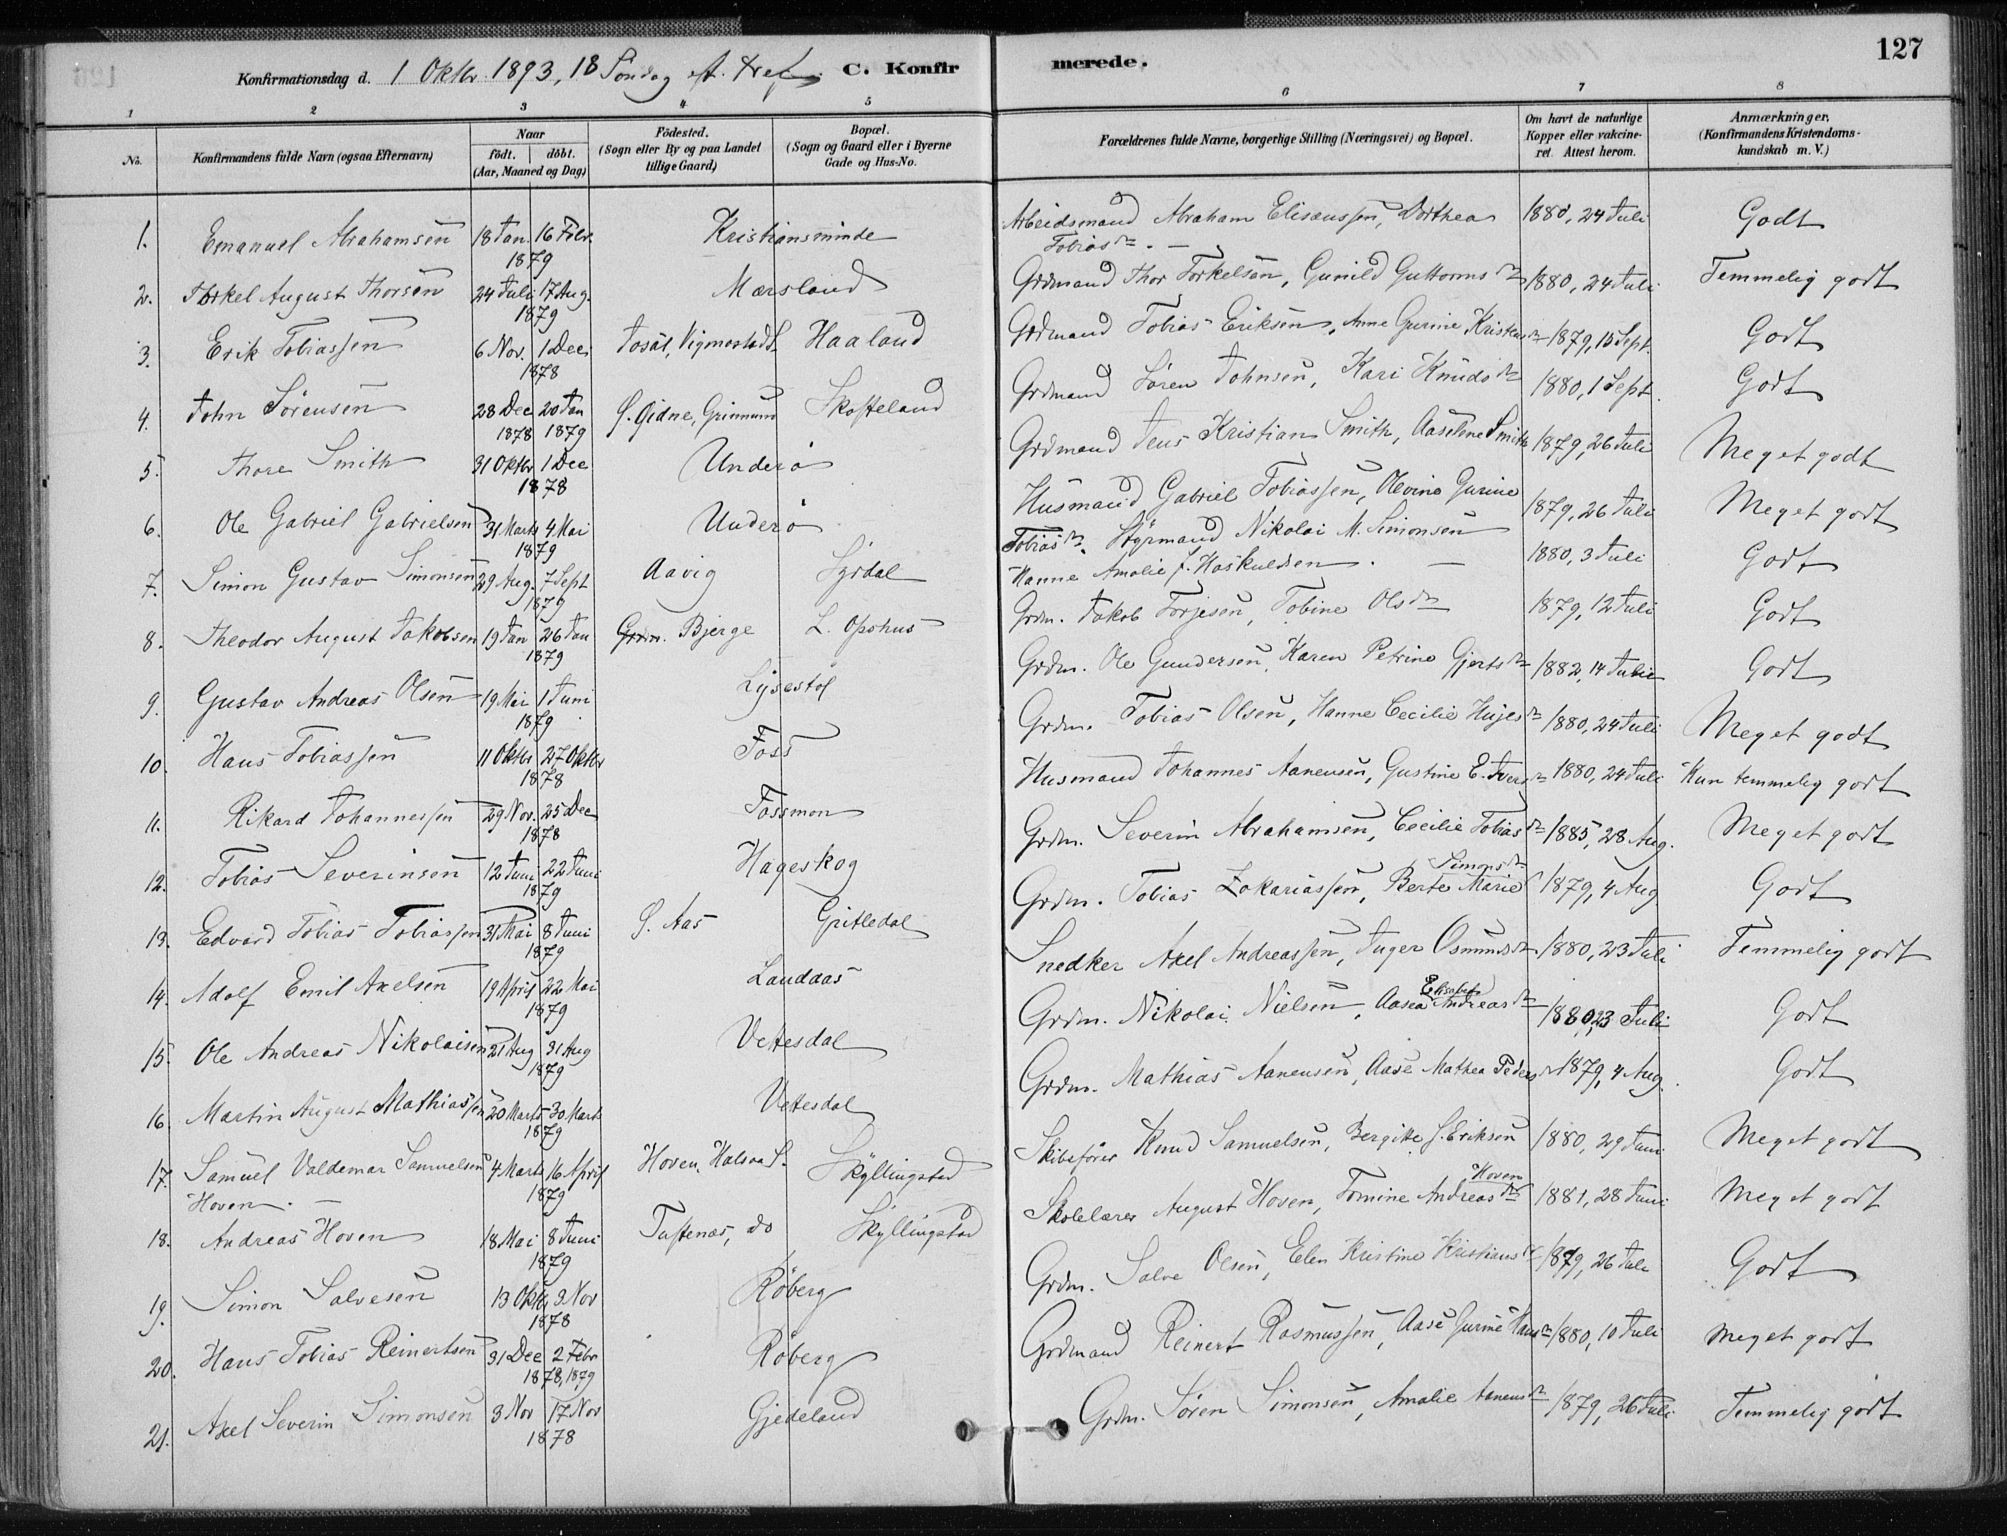 127
Konfirmationsdag d. 1 Oktbr. 1893, 18 Søndag eft. Tref. C. Konfirmerede.
1 2 3 4 5 6 7 8
No. Konfirmandens fulde Navn (ogsaa Efternavn) Naar født. døbt. (Aar, Maaned og Dag) Fødested. (Sogn eller By og paa Landet tillige Gaard) Bopæl. (Sogn og Gaard eller i Byerne Gade og Hus-No. Forældrenes fulde Navne, borgerlige Stilling (Næringsvei) og Bopæl. Om havt de naturlige Kopper eller vakcineret. Attest herom. Anmærkninger. (Konfirmandens Kristendomskundskab m. V.)
1. Emanuel Abrahamsen 18 Jan. 16 Febr. 1879 Kristiansminde Arbeidsmand Abraham Elisæussen, Dorthea Tobiasdr. 1880, 24 Juli Godt
2. Torkel August Thorsen 24 Juli 17 Aug. 1879 Mærsland Grdmand Thor Torkelsen, Gunild Guttormsdr 1880, 24 Juli Temmelig godt
3. Erik Tobiassen 6 Nov. 1 Dec. 1878 Josål, Vigmostad S. Haaland Grdmand Tobias Eriksen, Anne Gurine Kristensdr 1879, 15 Sept. Godt
4. John Sørensen 28 Dec 1878 20 Jan 1879 S. Øidne, Grinnum Skofteland Grdmand Søren Johnsen, Kari Knudsdr 1880, 1 Sept. Godt
5. Thore Smith 31 Oktbr 1 Dec 1878 Underø Grdmand Jens Kristian Smith, Aaselene Smith 1879, 26 Juli Meget godt
6. Ole Gabriel Gabrielsen 31 Marts 4 Mai 1879 Underø Husmand Gabriel Tobiassen, Olevine Gurine Tobiasdr. 1879, 26 Juli Meget godt
7. Simon Gustav Simonsen 29 Aug. 7 Sept 1879 Aavig Syrdal Styrmand Nikolai M. Simonsen Hanne Amalie f. Haskuldsen. 1880, 3 Juli Godt
8. Theodor August Jakobsen 19 Jan 26 Jan 1879 Grdm. Bjerge L. Opohus Grdm. Jakob Torjesen, Tobine Olsdr 1879, 12 Juli Godt
9. Gustav Andreas Olsen 19 Mai 1 Juni 1879 Lysestøl Grdm. Ole Gundersen, Karen Petrine Gjertsdr 1882, 14 Julie Godt
10. Hans Tobiassen 11 Oktbr 27 Oktbr 1878 Foss Grdm. Tobias Olsen, Hanne Cecilie 1880, 24 Juli Meget godt
11. Rikard Johannessen 29 Nov. 25 Dec 1878 Fossmon Husmand Johannes Aanensen, Gustine E. 1880, 24 Juli Kun temmelig godt
12. Tobias Severinsen 12 Juni 22 Juni 1879 Hageskog Grdm. Severin Abrahamsen, Cecilie Tobiasdr 1885, 28 Aug. Meget godt
13. Edvard Tobias Tobiassen 31 Mai 8 Juni 1879 S. Aas Gritledal Grdm. Tobias Zakariassen, Berte Marie Simonsdr 1879, 4 Aug Godt
14. Adolf Emil Axelsen 19 April 22 Mai 1879 Landaas Snedker Axel Andreassen, Inger Osmundsdr 1880, 23 Juli Temmelig godt
15. Ole Andreas Nikolaisen 21 Aug 31 Aug 1879 Vetesdal Grdm. Nikolai Nielsen, Aasea Elisabet Andreasdr 1880, 23 Juli Godt
16. Martin August Mathiassen 20 Marts 30 Marts 1879 Vetesdal Grdm. Mathias Aanensen, Aase Mathea Peders 1879, 4 Aug. Godt
17. Samuel Valdemar Samuelsen Hoven. 4 Marts 16 April 1879 Hoven, Halsaa S. Skyllingstad Skibsfører Knud Samuelsen, Bergitte S. Eriksen 1880, 29 Juni Meget godt
18. Andreas Hoven 18 Mai 8 Juni 1879 Tuftenæs, do Skyllingstad Skolelærer August Hoven, Tomine Andreasdr Hoven 1881, 28 Juni Meget godt
19. Simon Salvesen 13 Oktbr 3 Nov 1878 Røberg Grdm. Salve Olsen, Elen Kristine Kristiansdr 1879, 26 Juli Godt
20. Hans Tobias Reinertsen 31 Dec 2 Febr 1878, 1879 Røberg Grdmand Reinert Rasmussen, Aase Gurine Hansdr 1880, 10 Juli Meget godt
21. Axel Severin Simonsen 3 Nov 17 Nov 1878 Gjedeland Grdm. Søren Simonsen, Amalie Aanensdr 1879, 26 Juli Temmelig godt